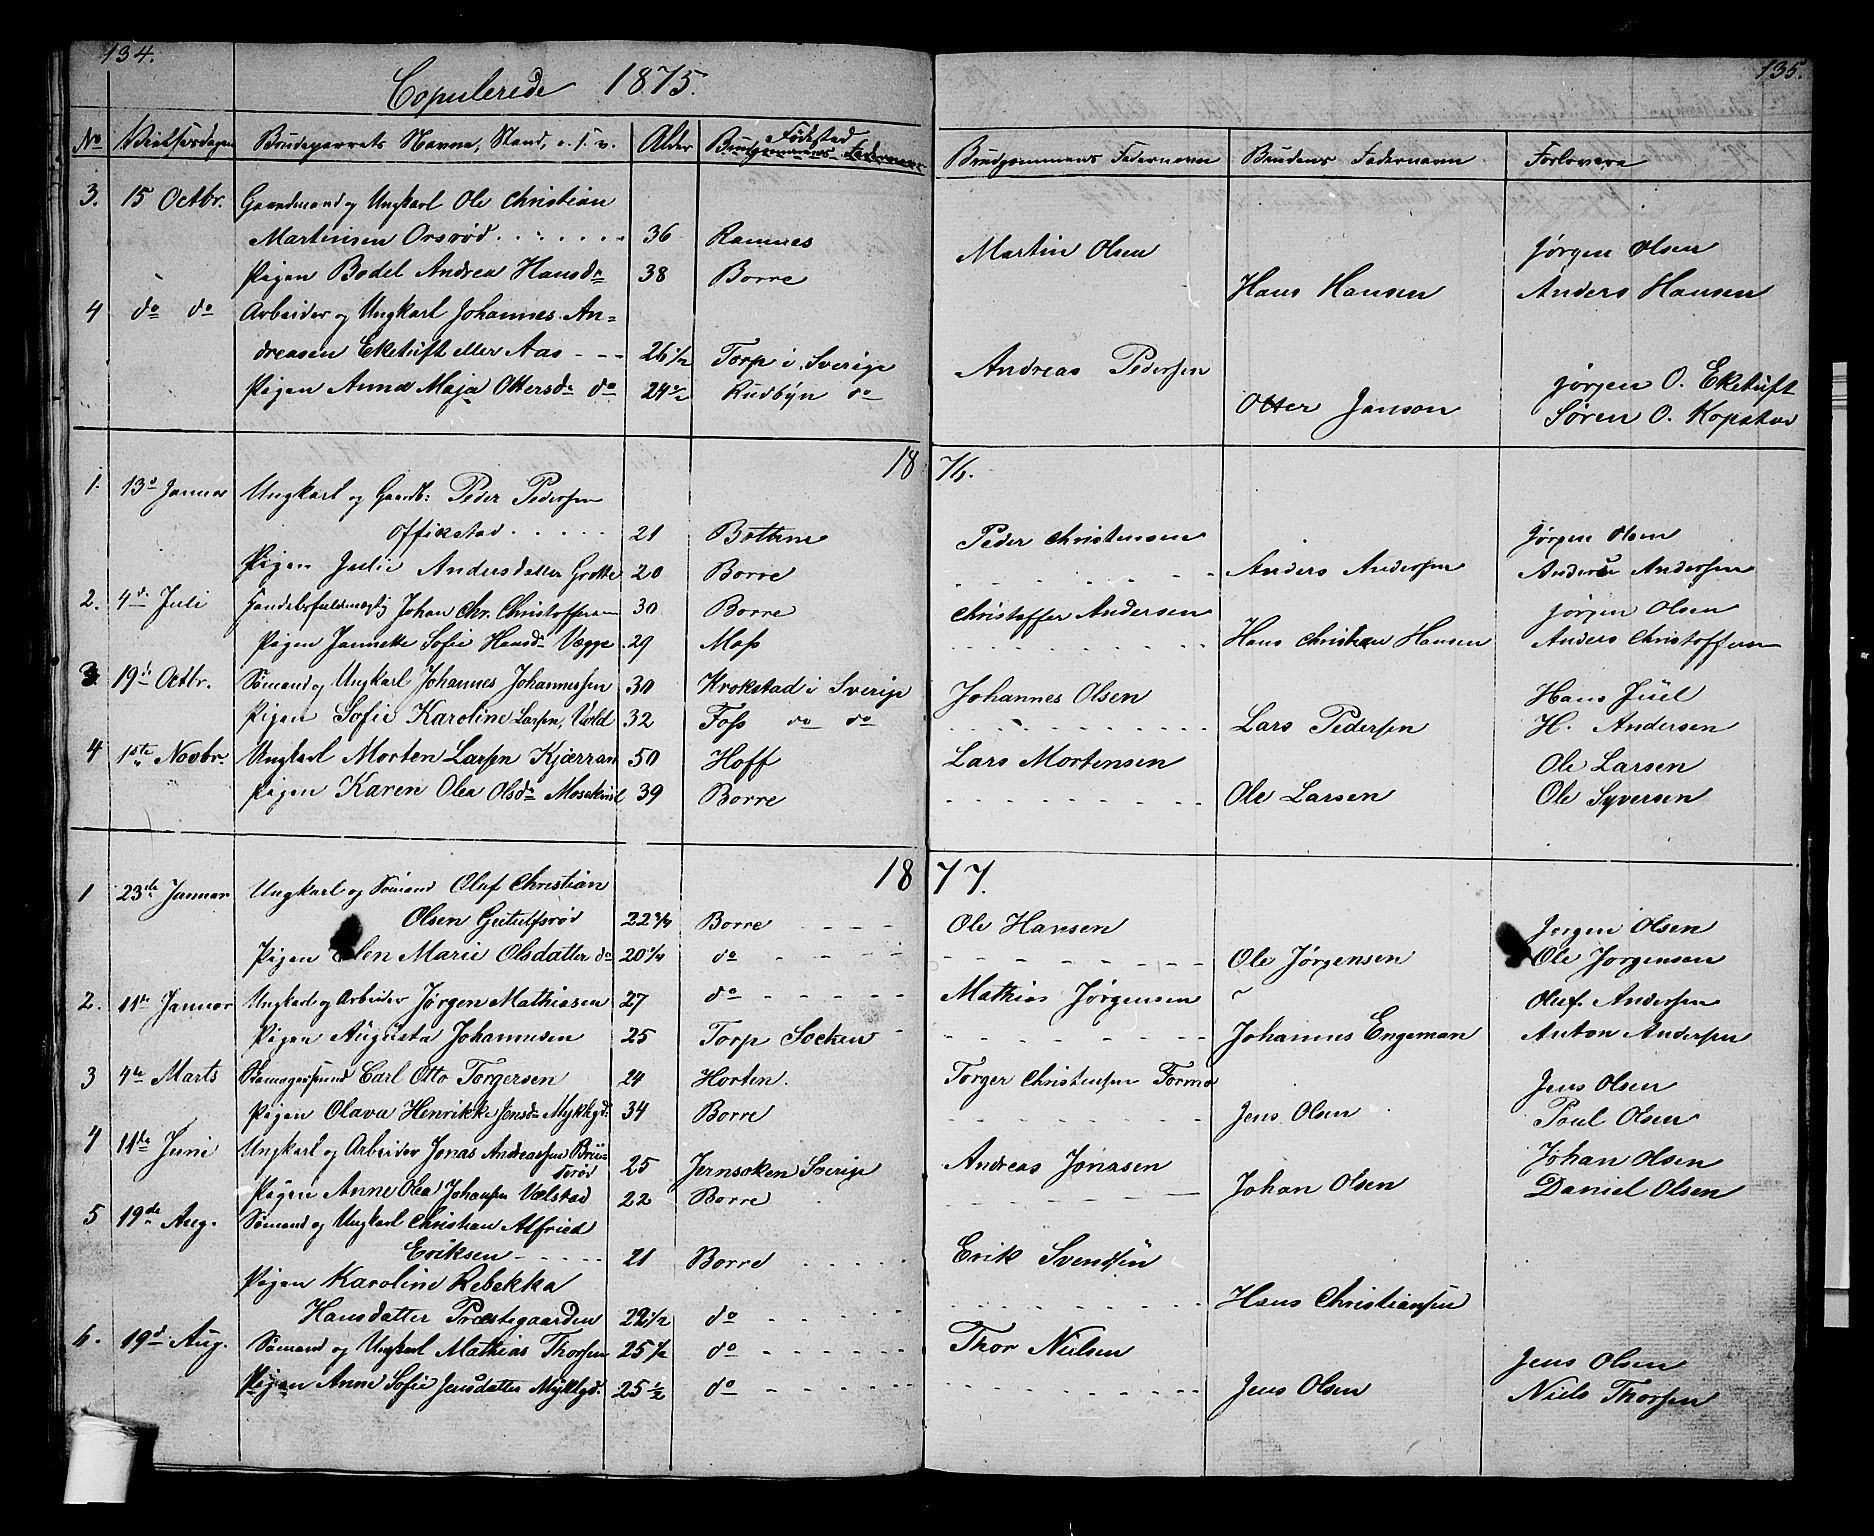 134.
135.
Copulerede 1875.
No Vielsesdagen Brudeparrets Navne, Stand, o.s.v. Alder Fødested Brudgommens Fadernavn Brudens Fadernavn Forlovere
3. 15 Octbr. Gaardmand og Ungkarl Ole Christian
Martinsen Orsrød 36 Ramnes Martin Olsen Jørgen Olsen
Pigen Bodel Andrea Hansdr 38 Borre Hans Hansen Anders Hansen
4 do do Arbeider og Ungkarl Johannes An=
dreasen Eketuft eller Aas 26 1/2 Torp i Sverige Andreas Pedersen Jørgen O. Eketuft
Pigen Anna Maja Ottersdr do 24 1/2 Rudbyn do Otter Janson Søren O. Kopstad
1876.
1. 13de Januar Ungkarl og Gaardb: Peder Pedersen
Offikstad 21 Bottene Peder Christensen Jørgen Olsen
Pigen Julie Andersdatter Grette 20 Borre Anders Andersen Anders Andersen
2. 4de Juli Handelsfuldmægtig Johan Chr. Christoffersen 30 Borre Christoffer Andersen Jørgen Olsen
Pigen Jannette Sofie Hansdr Vægge 29 Moss Hans Christian Hansen Anders Christoffersen
3. 19de Octbr. Sømand og Ungkarl Johannes Johannessen 30 Krokstad i Sverige Johannes Olsen Hans Juel
Pigen Sofie Karoline Larsen, Vold 32 Foss do do Lars Pedersen H. Andersen
4 1ste Novbr. Ungkarl Morten Larsen Kjærran 50 Hoff Lars Mortensen Ole Larsen
Pigen Karen Olea Olsdr 39 Borre Ole Larsen Ole Syversen
1877.
1 23de Januar Ungkarl og Sømand Oluf Christian
Olsen Gutulfsrød 22 3/4 Borre Ole Hansen Jørgen Olsen
Pigen Elen Marie Olsdatter do 20 1/4 do Ole Jørgensen Ole Jørgensen
2. 11te Januar Ungkarl og Arbeider Jørgen Mathiasen 27 do Mathias Jørgensen Oluf. Andersen
Pigen Augusta Johannesen 25 Torp Socken Johannes Engeman Anton Andersen
3 4de Marts Carl Otto Torgersen 24 Horten. Torger Christensen Formo Jens Olsen
Pigen Olava Henrikke Jensdr Myklegd. 34 Borre Jens Olsen Poul Olsen
4 11te Juni Ungkarl og Arbeider Jonas Andreassen Bru=
srød 25 Jernsoken Sverige Andreas Jonasen Johan Olsen
Pigen Anne Olea Johansen Vælstad 22 Borre Johan Olsen Daniel Olsen
5 19de Aug. Sømand og Ungkarl Christian Alfried
Eriksen 21 Borre Erik Svendsen
Pigen Karoline Rebekka
Hansdatter Præstegaarden 22 1/2 do Hans Christiansen
6. 19d. Aug. Sømand og Ungkarl Mathias Thorsen 25 1/2 do Thor Nielsen Jens Olsen
Pigen Anne Sofie Jensdatter Myklgd. 25 1/2 do Jens Olsen Niels Thorsen